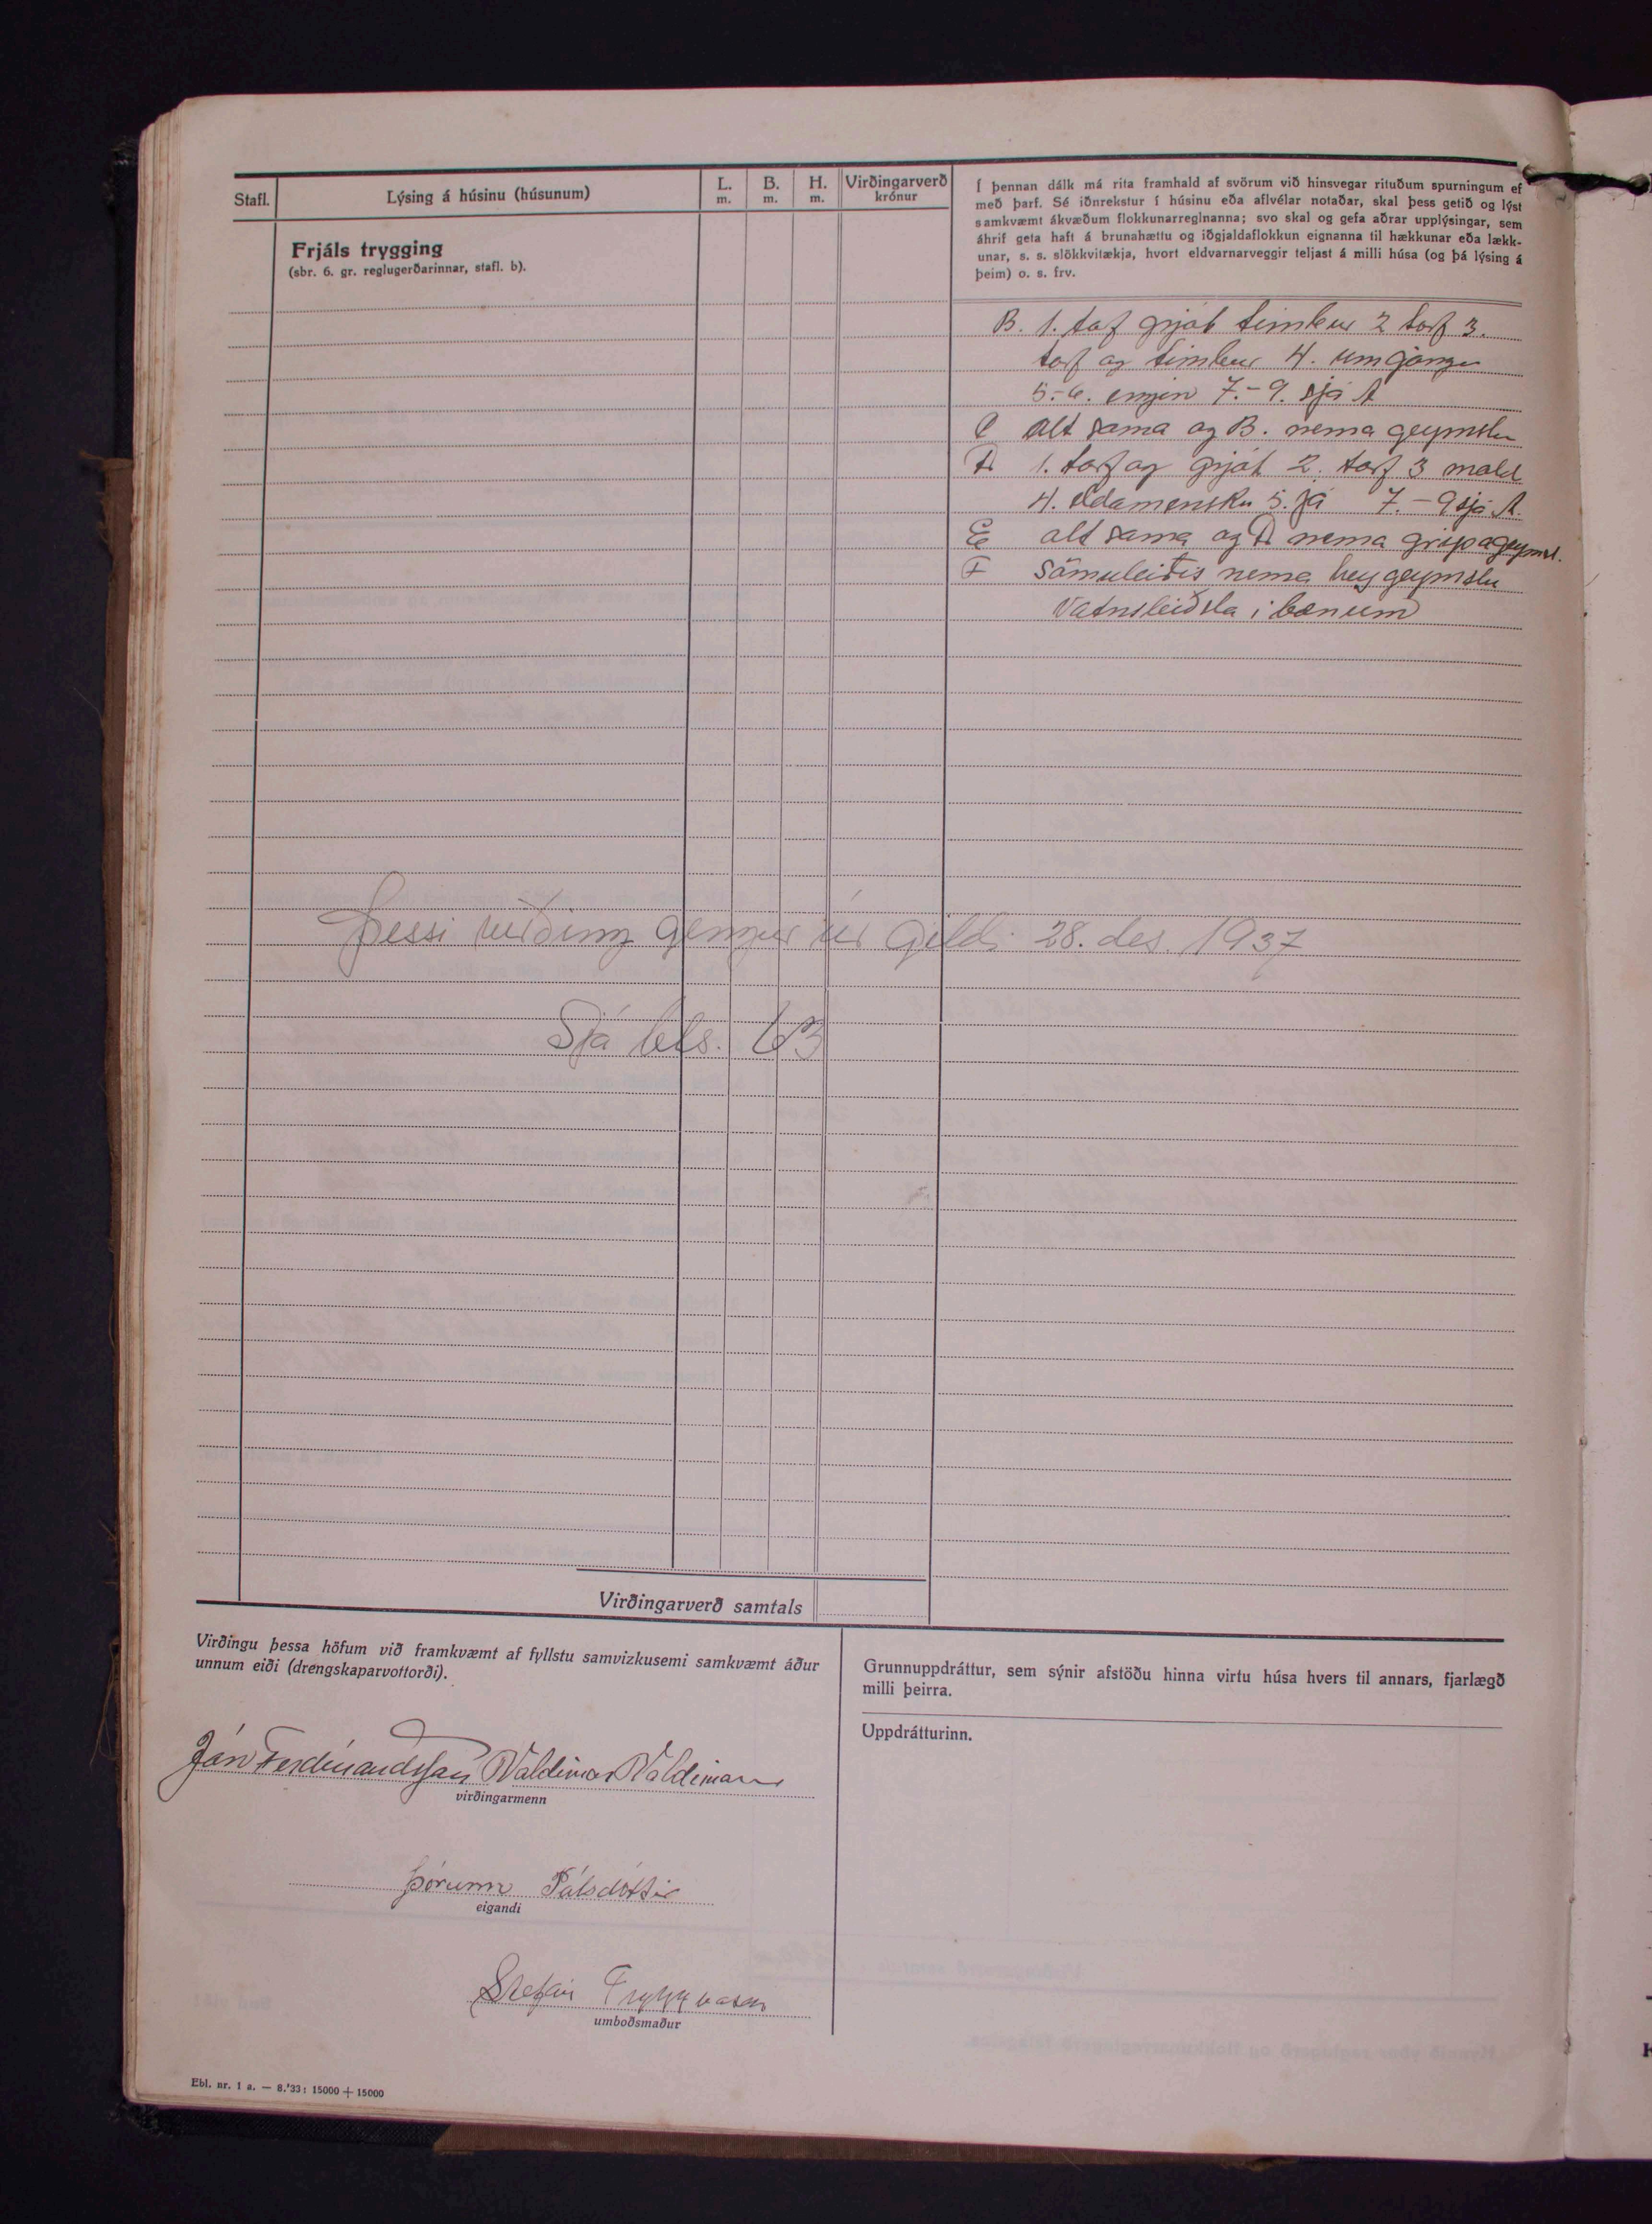 Stafl. Lýsing á húsinu (húsunum) L. m. B. m. H. m. Virðingarverð krónur
Frjáls trygging
(sbr. 6. gr. reglugerðarinnar, stafl. b).
Í þennan dálk má rita framhald af svörum við hinsvegar rituðum spurningum ef
með þarf. Sé iðnrekstur í húsinu eða aflvélar notaðar, skal þess getið og lýst
samkvæmt ákvæðum flokkunarreglnanna; svo skal og gefa aðrar upplýsingar, sem
áhrif geta haft á brunahættu og iðgjaldaflokkun eignanna til hækkunar eða lækk-
unar, s. s. slökkvitækja, hvort eldvarnarveggir teljast á milli húsa (og þá lýsing á
þeim) o. s. frv.
B. 1. torf grjót timbur 2 torf 3.
torf og timbur 4. umgángur
5.-6. engin 7.-9. sjá A
C alt sama og B. nema geymslu
D 1. torf og grjót 2. torf 3 mold
4. eldamensku 5. já 7.-9 sjá A.
E alt sama og D nema gripageymsl.
F Sömuleiðis nema hey geymslu
Vatnsleiðsla i bænum
Þessi virðing gengur úr gildi 28. des. 1937
Sjá bls. 63
Virðingarverð samtals
Virðingu þessa höfum við framkvæmt af fyllstu samvizkusemi samkvæmt áður
unnum eiði (drengskaparvottorði).
Jón Ferdínandsson Valdimar Valdimars
virðingarmenn
Þórunn Pálsdóttir
eigandi
Stefán Tryggvason
umboðsmaður
Grunnuppdráttur, sem sýnir afstöðu hinna virtu húsa hvers til annars, fjarlægð
milli þeirra.
Uppdrátturinn.
Ebl. nr. 1 a. — 8.'33: 15000 + 15000